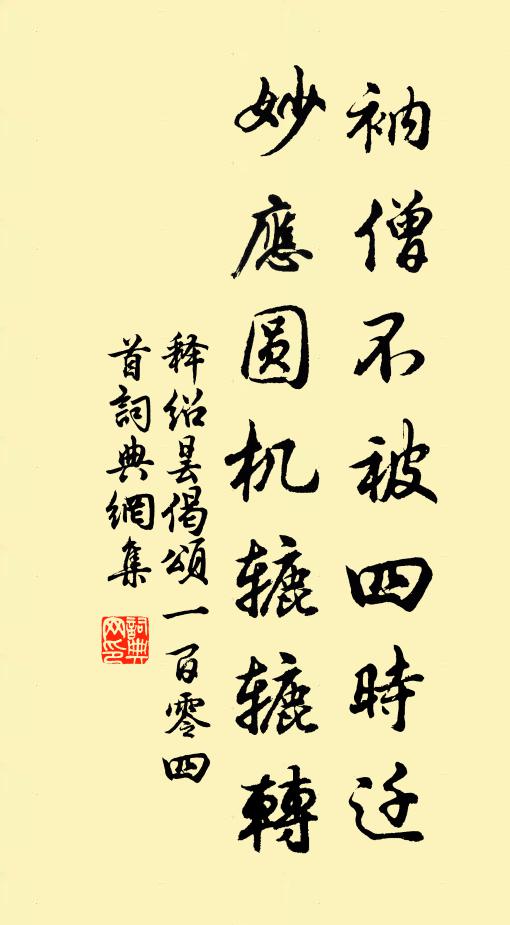 衲僧不被四時迁
妙應圆机辘辘轉
释绍昙偈頌一百零四
首詞典網集
詞典网印